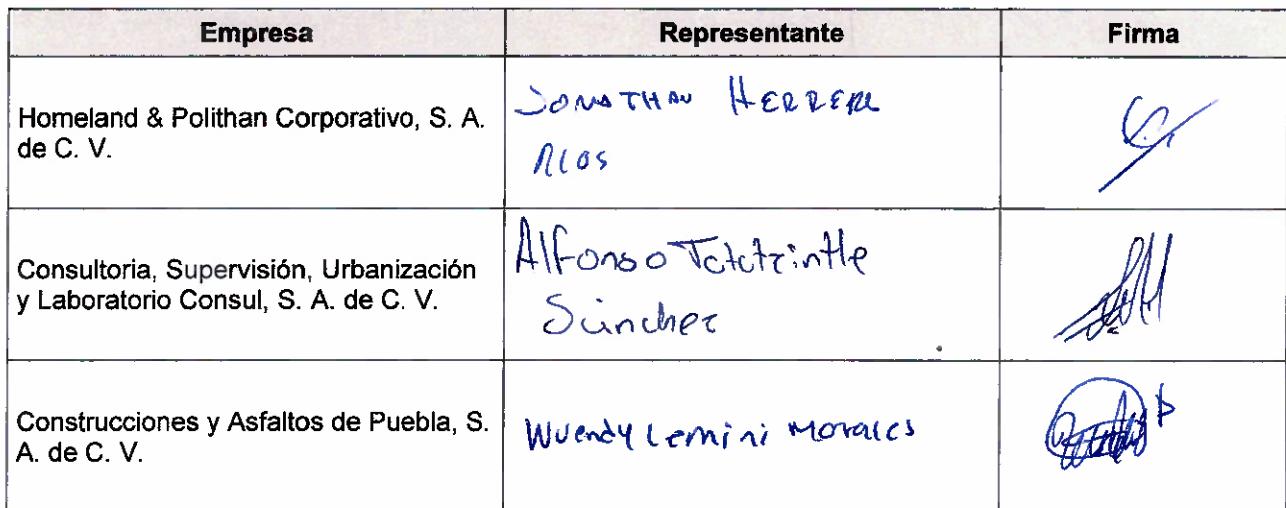 Empresa Representante Firma
Homeland & Polithan Corporativo, S. A.
de C. V.
JONATHAN HERRERA
RIOS
Consultoria, Supervisión, Urbanización
y Laboratorio Consul, S. A. de C. V.
Alfonso
Sánchez
Construcciones y Asfaltos de Puebla, S.
A. de C. V.
Wuendy Lemini Morales